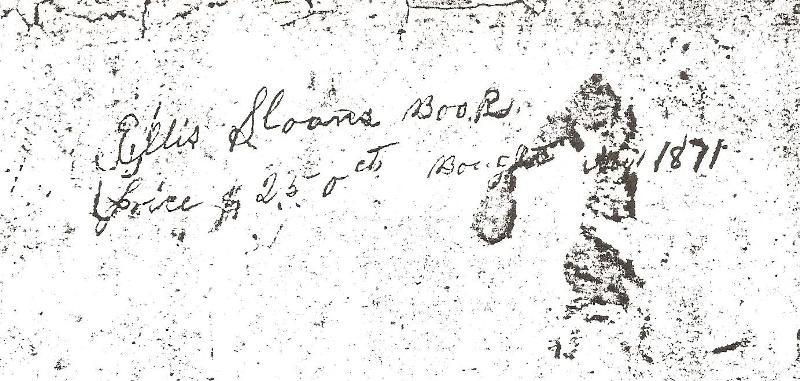 Ellis Sloans Book
Price $ 25 0 cts Bought 1871